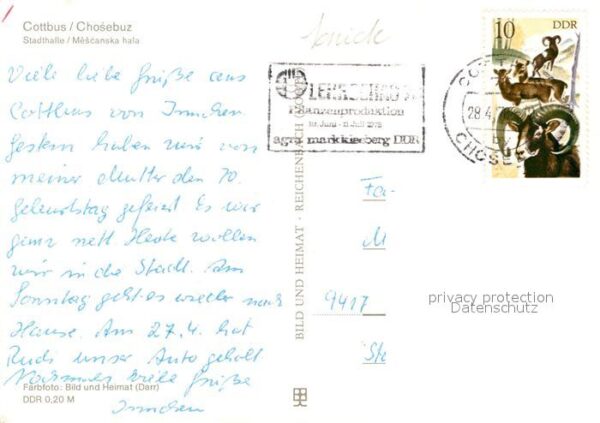 Cottbus / Chośebuz
Stadthalle / Měšćanska hala
knick
Viele liebe Grüße aus
Cottbus von Irmchen.
Gestern haben wir von
meiner Mutter den 70.
Geburtstag gefeiert Es war
ganz nett Heute wollen
wir in die Stadt. Am
Sonntag geht es wieder nach
Hause. Am 27.4. hat
Rudi unser Auto geholt
Nochmals viele Grüße
Irmchen
Farbfoto: Bild und Heimat (Darr)
DDR 0,20 M
BILD UND HEIMAT · REICHENBACH
Pflanzenproduktion
agra markkleeberg DDR
10 DDR
28.4.
Fa-
M
9417
Ste
privacy protection
Datenschutz